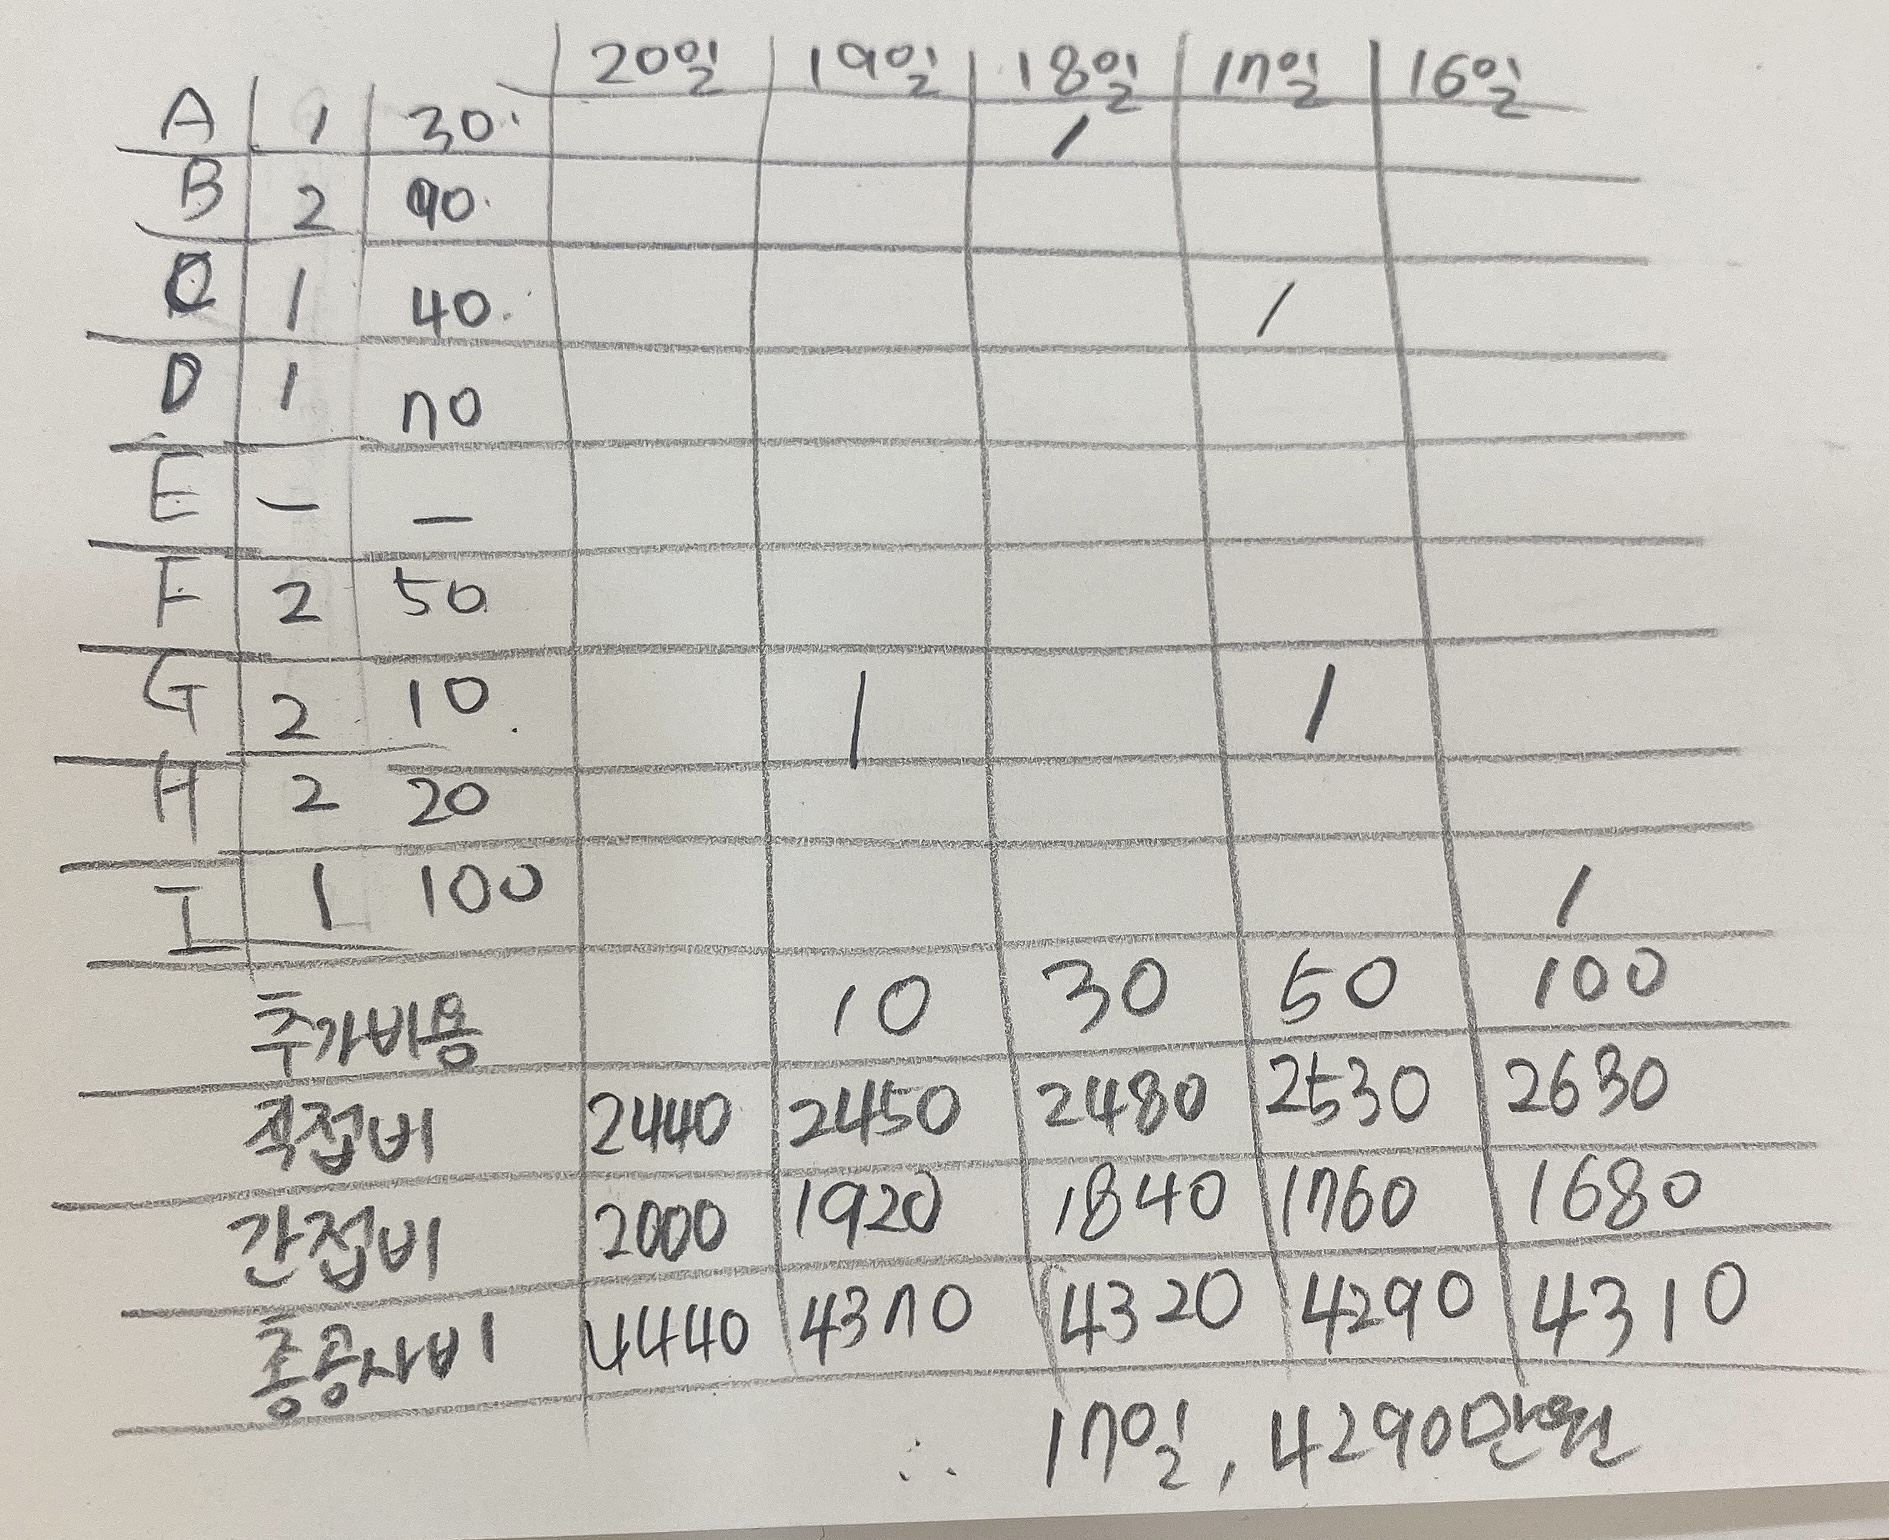 20일 19일 18일 17일 16일
A 1 30 1
B 2 90
C 1 40 1
D 1 70
E - -
F 2 50
G 2 10 1 1
H 2 20
I 1 100 1
추가비용 10 30 50 100
직접비 2440 2450 2480 2530 2630
간접비 2000 1920 1840 1760 1680
총공사비 4440 4370 4320 4290 4310
∴ 17일, 4290만원